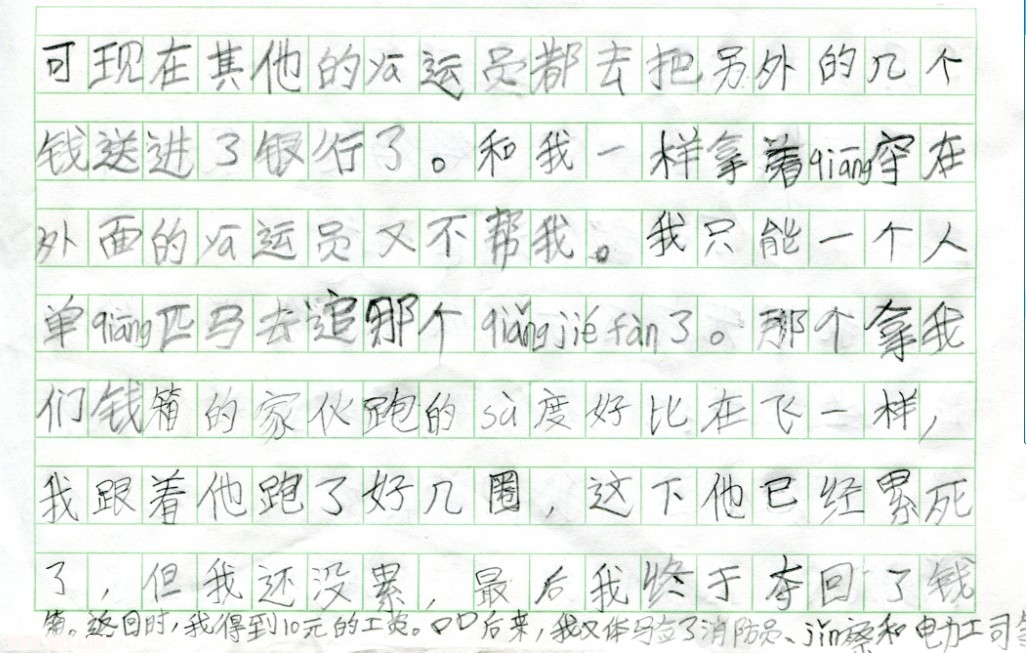 可现在其他的yā运员都去把另外的几个
钱送进了银行了。和我一样拿着qiāng守在
外面的yā运员又不帮我。我只能一个人
单qiāng匹马去追那个qiǎngjiéfàn了。那个拿我
们钱箱的家伙跑的sù度好比在飞一样,
我跟着他跑了好几圈,这下他已经累死
了,但我还没累,最后我终于夺回了钱
箱。返回时,我得到10元的工资。后来,我又体验了消防员、jǐn察和电力工司